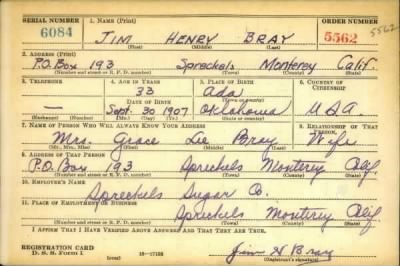 SERIAL NUMBER 1. NAME (Print) ORDER NUMBER
6084 JIM HENRY BRAY 5562 5562
(First) (Middle) (Last)
2. ADDRESS (Print)
P.O. Box 193 Spreckels Monterey Calif
(Number and street or R. F. D. number) (Town) (County) (State)
3. TELEPHONE 4. AGE IN YEARS 5. PLACE OF BIRTH 6. COUNTRY OF CITIZENSHIP
33 Ada
DATE OF BIRTH (Town or county)
— Sept. 30 1907 Oklahoma U.S.A.
(Exchange) (Number) (Mo.) (Day) (Yr.) (State or country)
7. NAME OF PERSON WHO WILL ALWAYS KNOW YOUR ADDRESS 8. RELATIONSHIP OF THAT PERSON
Mrs. Grace Bray Wife
(Mr., Mrs., Miss) (First) (Middle) (Last)
9. ADDRESS OF THAT PERSON
P.O. Box 193 Spreckels Monterey Calif.
(Number and street or R. F. D. number) (Town) (County) (State)
10. EMPLOYER'S NAME
Spreckels Sugar Co.
11. PLACE OF EMPLOYMENT OR BUSINESS
Spreckels Monterey Calif.
(Number and street or R. F. D. number) (Town) (County) (State)
I AFFIRM THAT I HAVE VERIFIED ABOVE ANSWERS AND THAT THEY ARE TRUE.
REGISTRATION CARD
D. S. S. FORM 1 (over) 16—17105 Jim H Bray
(Registrant's signature)